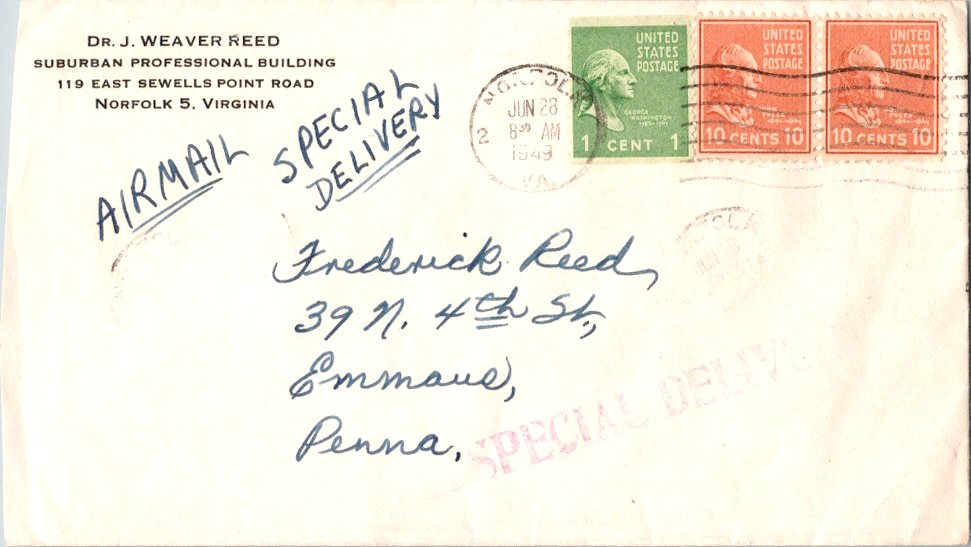 DR. J. WEAVER REED
SUBURBAN PROFESSIONAL BUILDING
119 EAST SEWELLS POINT ROAD
NORFOLK 5, VIRGINIA
AIRMAIL
SPECIAL
DELIVERY
NORFOLK
JUN 28
8 30 AM
1949
2
VA.
UNITED
STATES
POSTAGE
GEORGE
WASHINGTON
1789-1797
1 CENT 1
UNITED
STATES
POSTAGE
TYLER
1841-1845
10 CENTS 10
UNITED
STATES
POSTAGE
TYLER
1841-1845
10 CENTS 10
JUN
Frederick Reed,
39 N. 4th St.,
Emmaus,
Penna.
SPECIAL DELIV